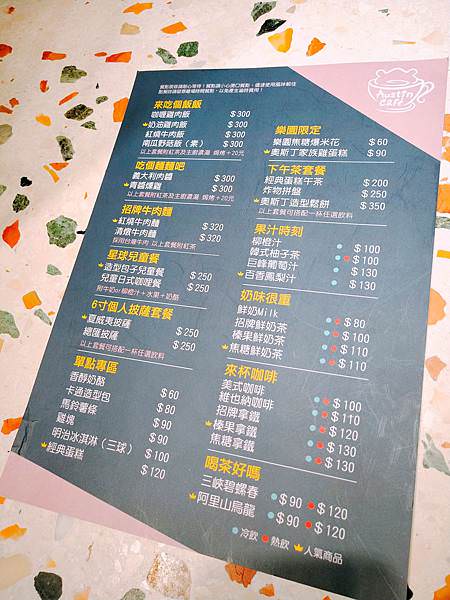 Austin
Café
來吃個飯飯
咖喱雞肉飯 $300
奶油雞肉飯 $300
紅燒牛肉飯 $300
南瓜野菇飯（素） $300
以上套餐附紅茶及主廚濃湯 焗烤＋20元
吃個麵麵吧
義大利肉醬 $300
青醬燻雞 $300
以上套餐附紅茶及主廚濃湯 焗烤＋20元
招牌牛肉麵
紅燒牛肉麵 $320
清燉牛肉麵 $320
採用台灣牛肉 以上套餐附紅茶
星球兒童餐
造型包子兒童餐 $250
兒童日式咖哩餐 $250
附牛奶or柳橙汁＋水果＋奶酪
6寸個人披薩套餐
夏威夷披薩 $250
總匯披薩 $250
以上套餐可搭配一杯任選飲料
單點專區
香醇奶酪 $60
卡通造型包 $80
馬鈴薯條 $90
雞塊 $90
明治冰淇淋（三球） $100
經典蛋糕 $120
樂園限定
樂園焦糖爆米花 $60
奧斯丁家族雞蛋糕 $90
下午茶套餐
經典蛋糕午茶 $200
炸物拼盤 $250
奧斯丁造型鬆餅 $350
以上套餐可搭配一杯任選飲料
果汁時刻
柳橙汁 $100
韓式柚子茶 $100
巨峰葡萄汁 $130
百香鳳梨汁 $130
奶味很重
鮮奶Milk $80
招牌鮮奶茶 $100
榛果鮮奶茶 $110
焦糖鮮奶茶 $110
來杯咖啡
美式咖啡 $100
維也納咖啡 $110
招牌拿鐵 $120
榛果拿鐵 $130
焦糖拿鐵 $130
喝茶好嗎
三峽碧螺春 $90 $120
阿里山烏龍 $90 $120
冷飲 熱飲 人氣商品